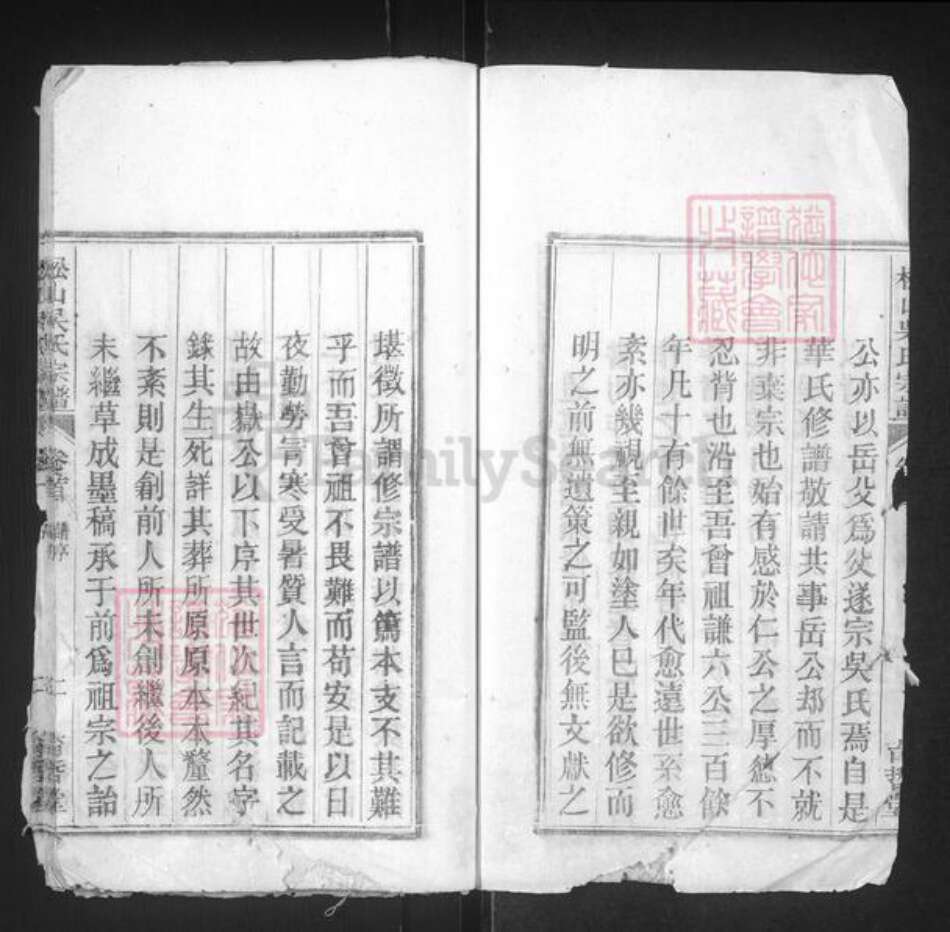 公亦以岳父爲父遂宗吳氏焉自是
華氏修譜敬請共事岳公却而不就
非棄宗也始有感於仁公之厚德不
忍背也沿至吾曾祖謙六公三百餘
年凡十有餘世矣年代愈遠世系愈
紊亦幾視至親如塗人巳是欲修而
明之前無遺策之可監後無文獻之
堪徵所謂修宗譜以篤本支不其難
乎而吾曾祖不畏難而苟安是以日
夜勤勞冐寒受暑質人言而記載之
故由嶽公以下序其世次紀其名字
錄其生死詳其葬所原原本本釐然
不紊則是創前人所未創繼後人所
未繼草成墨稿承于前爲祖宗之詒
松山吳氏宗譜 卷首 譜序
FamilySearch